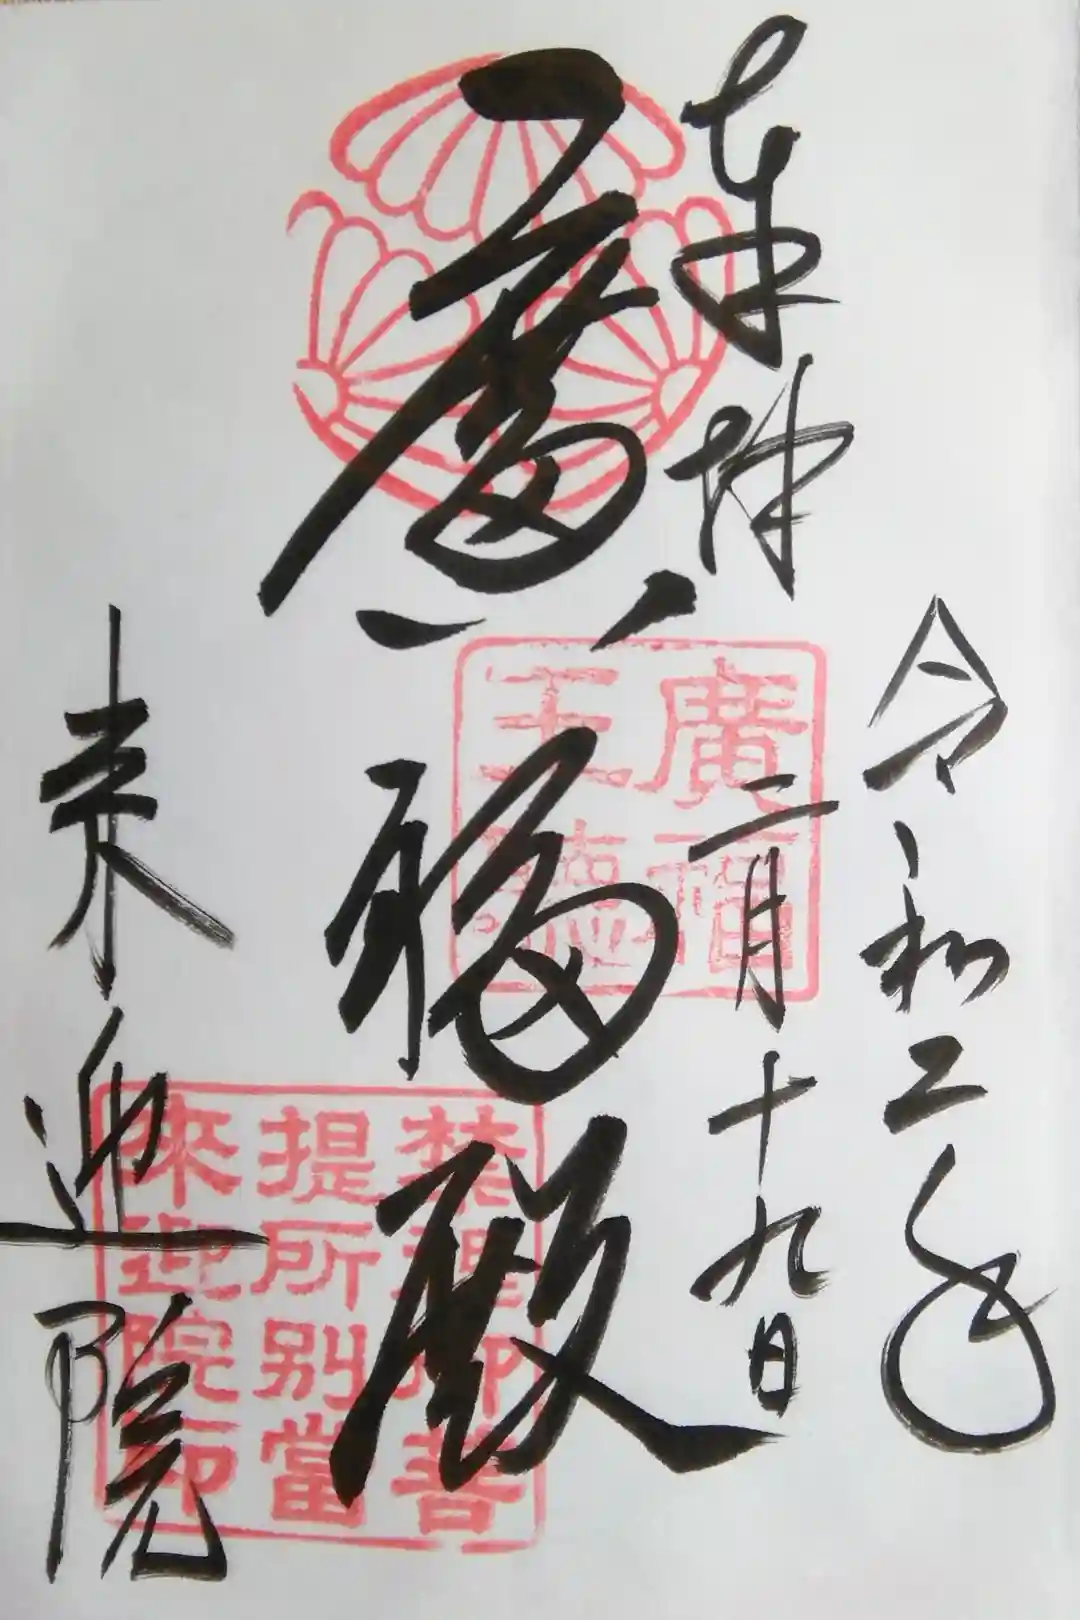 令和二年
二月十九日
奉拝
廣福殿
来迎院
廣福
禁裡御菩
提所別當
來迎院印